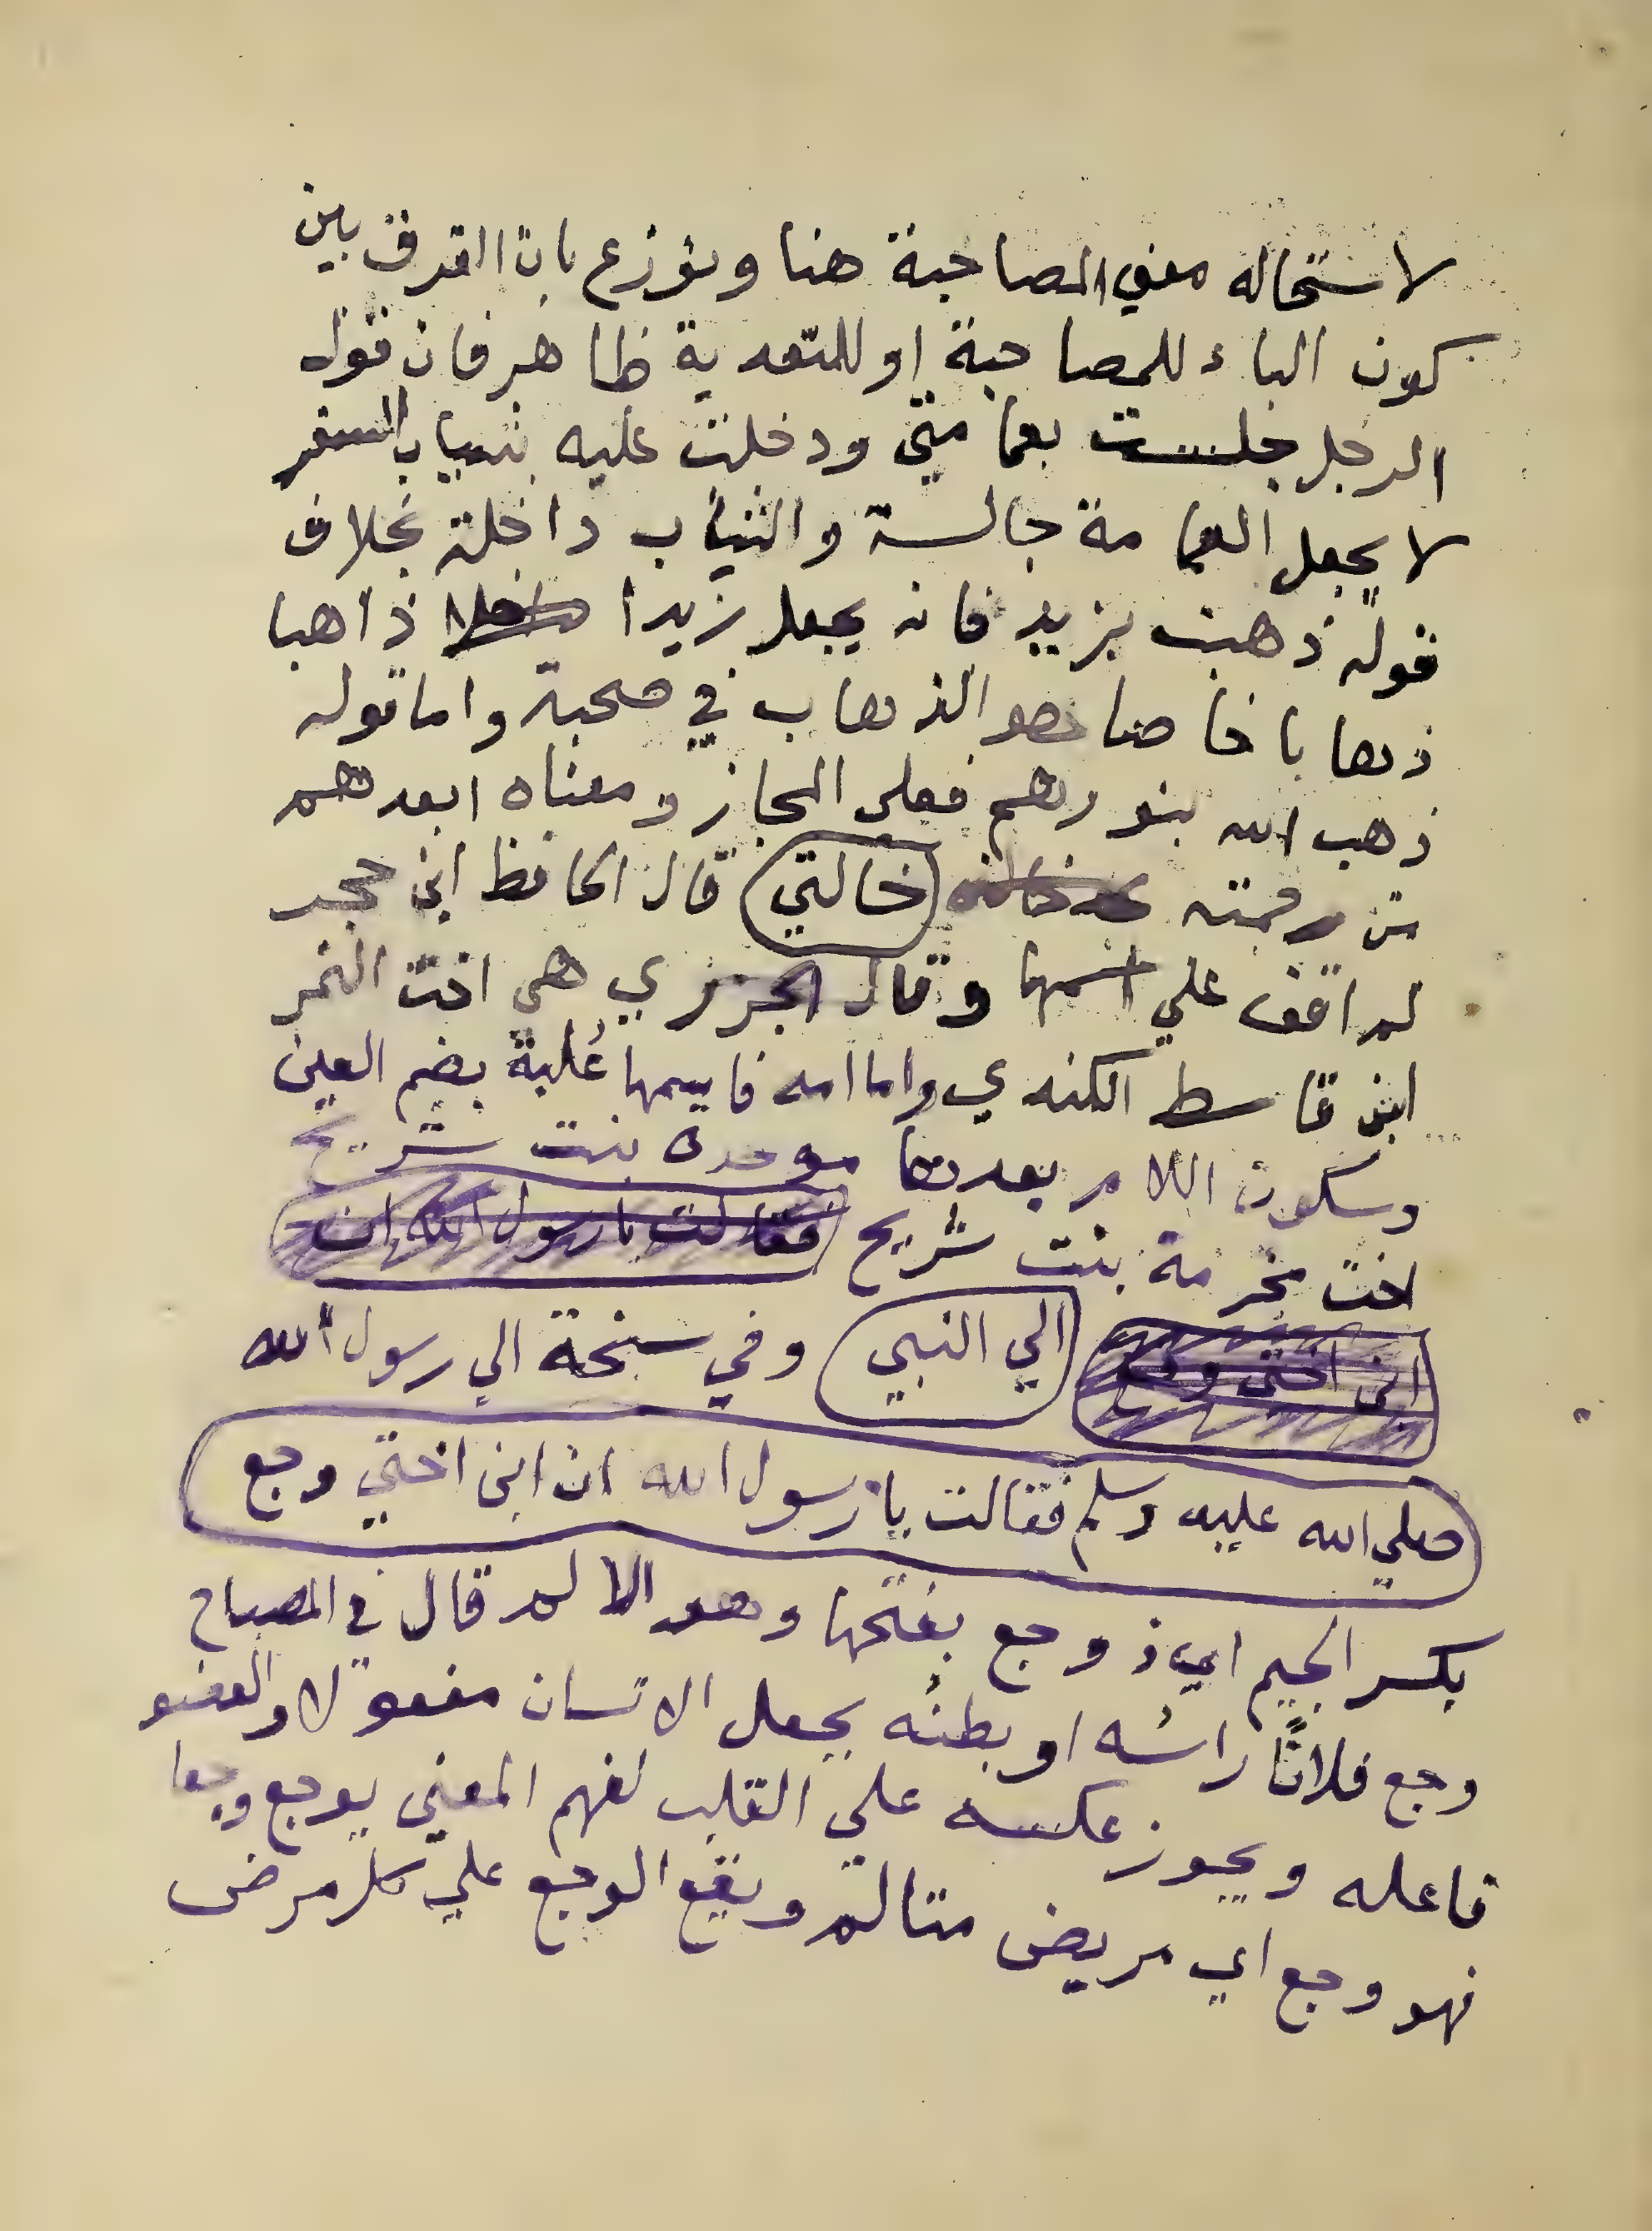 لاستحاله معني المصاحبة هنا ونوزع بان الفرق بين
كون الباء للمصاحبة او للتعدية ظاهر فان قول
الرجل جلست بعمامتي ودخلت عليه بثياب السفر
لا يجعل العمامة جالسة والثياب داخلة بخلاف
قوله ذهبت بزيد فانه يجعل زيدا ذاهبا
ذهابا خاصا هو الذهاب في صحبة واما قوله
ذهب الله بنورهم فعلي المجاز ومعناه ابعدهم
من رحمته خالتي قال الحافظ ابن حجر
لم اقف علي اسمها وقال الجزري هي اخت النمر
ابن قاسط الكندي واما امه فاسمها عُلبة بضم العين
وسكون اللام بعدها موحدة بنت شريح
اخت مخرمة بنت شريح فقالت يا رسول الله ان
ابن اختي وجع الي النبي وفي نسخة الي رسول الله
صلي الله عليه وسلم فقالت يا رسول الله ان ابن اختي وجع
بكسر الجيم اي ذو وجع بفتحها وهو الالم قال في المصباح
وجع فلاناً راسُه او بطنُه يجعل الانسان مفعولا والعضو
فاعله ويجوز عكسه علي القلب لفهم المعني يوجع وجعا
فهو وجع اي مريض متالم ويقع الوجع علي كل مرض